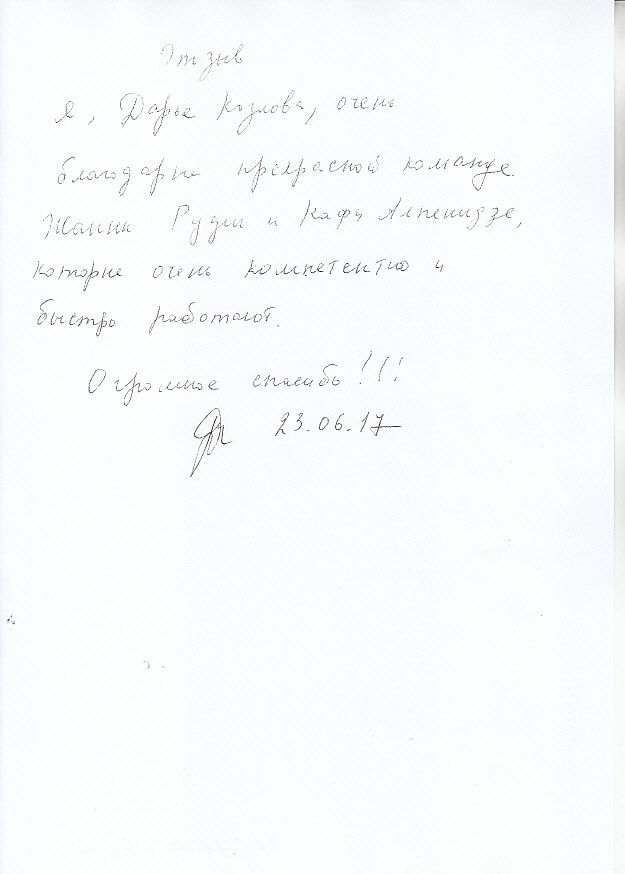 Отзыв
Я, Дарья Козлова, очень
благодарна прекрасной команде
Жанны Руды и Кафи Алпенидзе,
которые очень компетентно и
быстро работают.
Огромное спасибо!!!
23.06.17